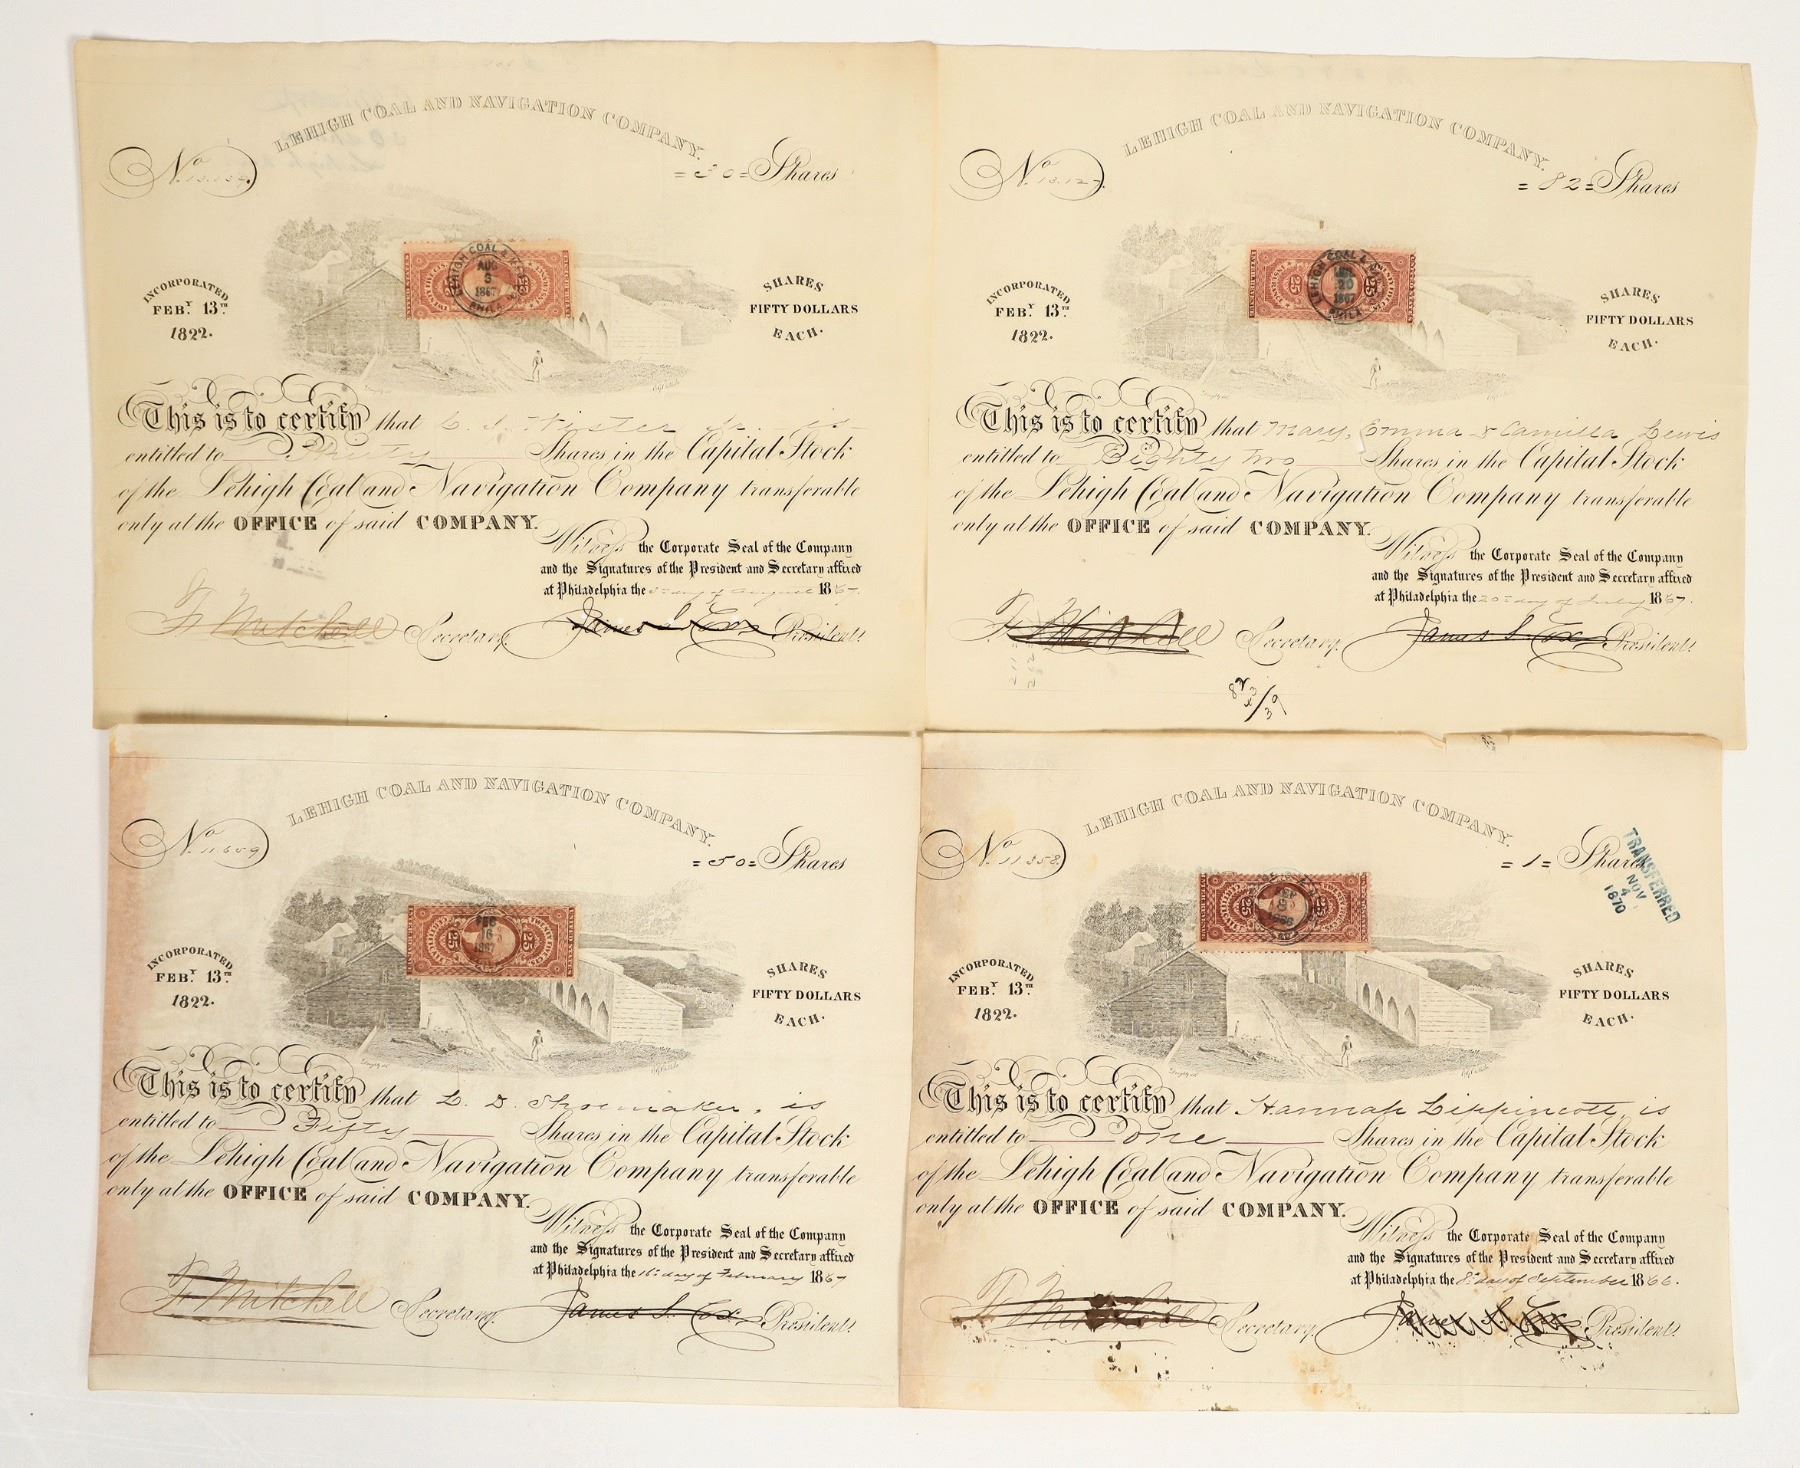 LEHIGH COAL AND NAVIGATION COMPANY.
No.
=30= Shares
LEHIGH COAL & NAV. CO.
AUG
3
1867
PHILA
INCORPORATED
FEBY. 13TH
1822.
SHARES
FIFTY DOLLARS
EACH.
This is to certify that Wister Jr. is
entitled to Thirty Shares in the Capital Stock
of the Lehigh Coal and Navigation Company transferable
only at the OFFICE of said COMPANY.
Witness the Corporate Seal of the Company
and the Signatures of the President and Secretary affixed
at Philadelphia the day of August 1867.
F Mitchell Secretary. James S. Cox President.
LEHIGH COAL AND NAVIGATION COMPANY.
No. 13.127.
=82= Shares
LEHIGH COAL &
20
1867
PHILA
INCORPORATED
FEBY. 13TH
1822.
SHARES
FIFTY DOLLARS
EACH.
This is to certify that Mary, Emma & Camilla Lewis
entitled to Eighty two Shares in the Capital Stock
of the Lehigh Coal and Navigation Company transferable
only at the OFFICE of said COMPANY.
Witness the Corporate Seal of the Company
and the Signatures of the President and Secretary affixed
at Philadelphia the 20th day of July 1867.
F Mitchell Secretary. James S. Cox President.
LEHIGH COAL AND NAVIGATION COMPANY.
No. 11.659
=50= Shares
25
FEB
16
1867
25
INCORPORATED
FEBY. 13TH
1822.
SHARES
FIFTY DOLLARS
EACH.
This is to certify that L. D. Shoemaker, is
entitled to Fifty Shares in the Capital Stock
of the Lehigh Coal and Navigation Company transferable
only at the OFFICE of said COMPANY.
Witness the Corporate Seal of the Company
and the Signatures of the President and Secretary affixed
at Philadelphia the 16th day of February 1867
F Mitchell Secretary. James S. Cox President.
LEHIGH COAL AND NAVIGATION COMPANY.
No. 11358.
=1= Shares
TRANSFERRED
NOV
4
1870
25
8
1866
25
INCORPORATED
FEBY. 13TH
1822.
SHARES
FIFTY DOLLARS
EACH.
This is to certify that Hannah Lippincott, is
entitled to One Shares in the Capital Stock
of the Lehigh Coal and Navigation Company transferable
only at the OFFICE of said COMPANY.
Witness the Corporate Seal of the Company
and the Signatures of the President and Secretary affixed
at Philadelphia the 8th day of September 1866.
F Mitchell Secretary. James S. Cox President.